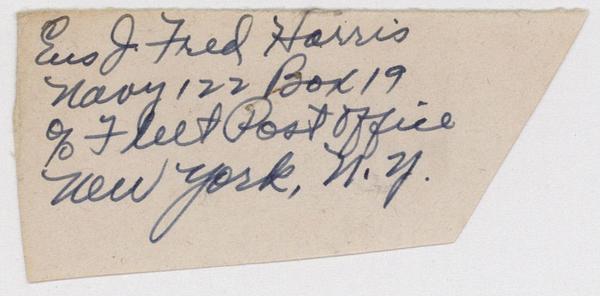 Ens J. Fred Harris
Navy 122 Box 19
c/o Fleet Post Office
New York, N.Y.